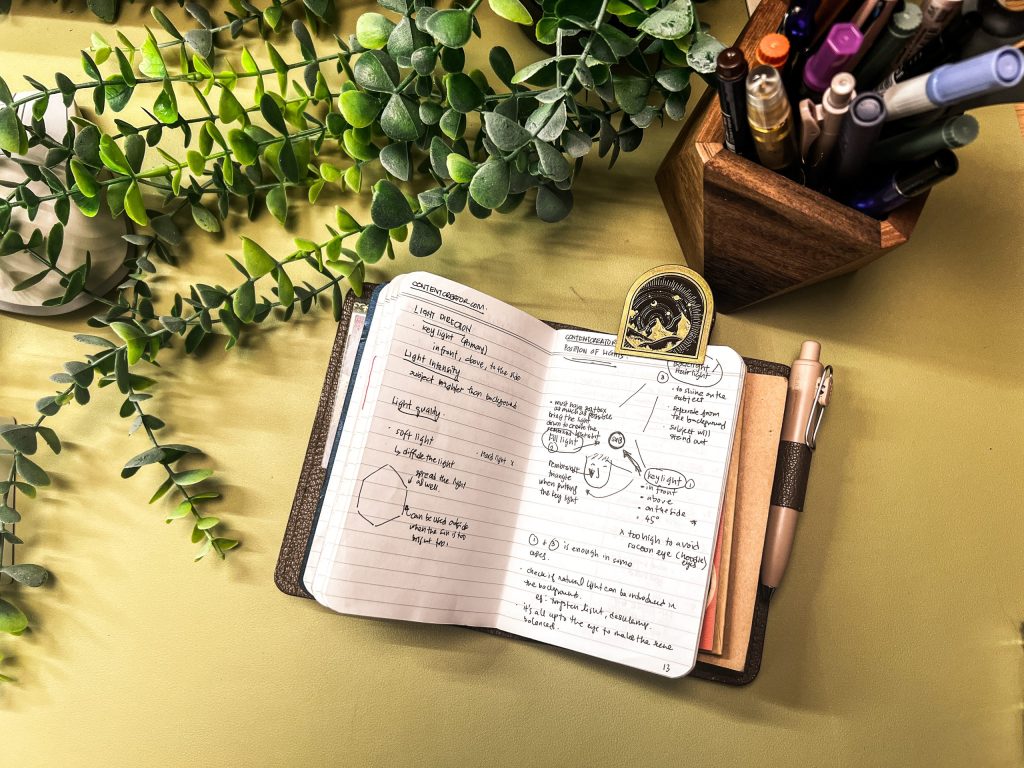 CONTENTCREATOR.COM
LIGHT DIRECTION
· key light (primary)
in front, above, to the side
Light Intensity
subject brighter than background
Light quality
· soft light
· Hard light x
↳ diffuse the light
spread the light
as well.
can be used outside
when the sun is too
bright too!
CONTENTCREATOR
POSITION OF LIGHTS
backlight /
hair light
③
· to shine on the
subject
· separate from
the background
· subject will
stand out
· must have
as much as possible
bring the light
down to create the
fill light
②
rembrandt
triangle
when putting
the key light
key light ①
· in front
· above
· on the side
· 45°
x too high to avoid
racoon eye (hoodie)
eyes
① + ③ is enough in some
cases
· check if natural light can be introduced in
the background.
eg: tungsten light, desk lamp.
· it's all up to the eye to make the scene
balanced.
13